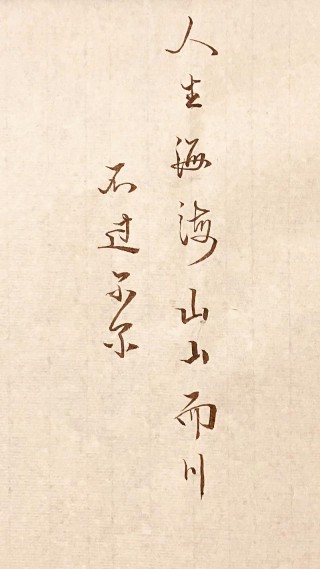 人生海海山山而川
不过尔尔